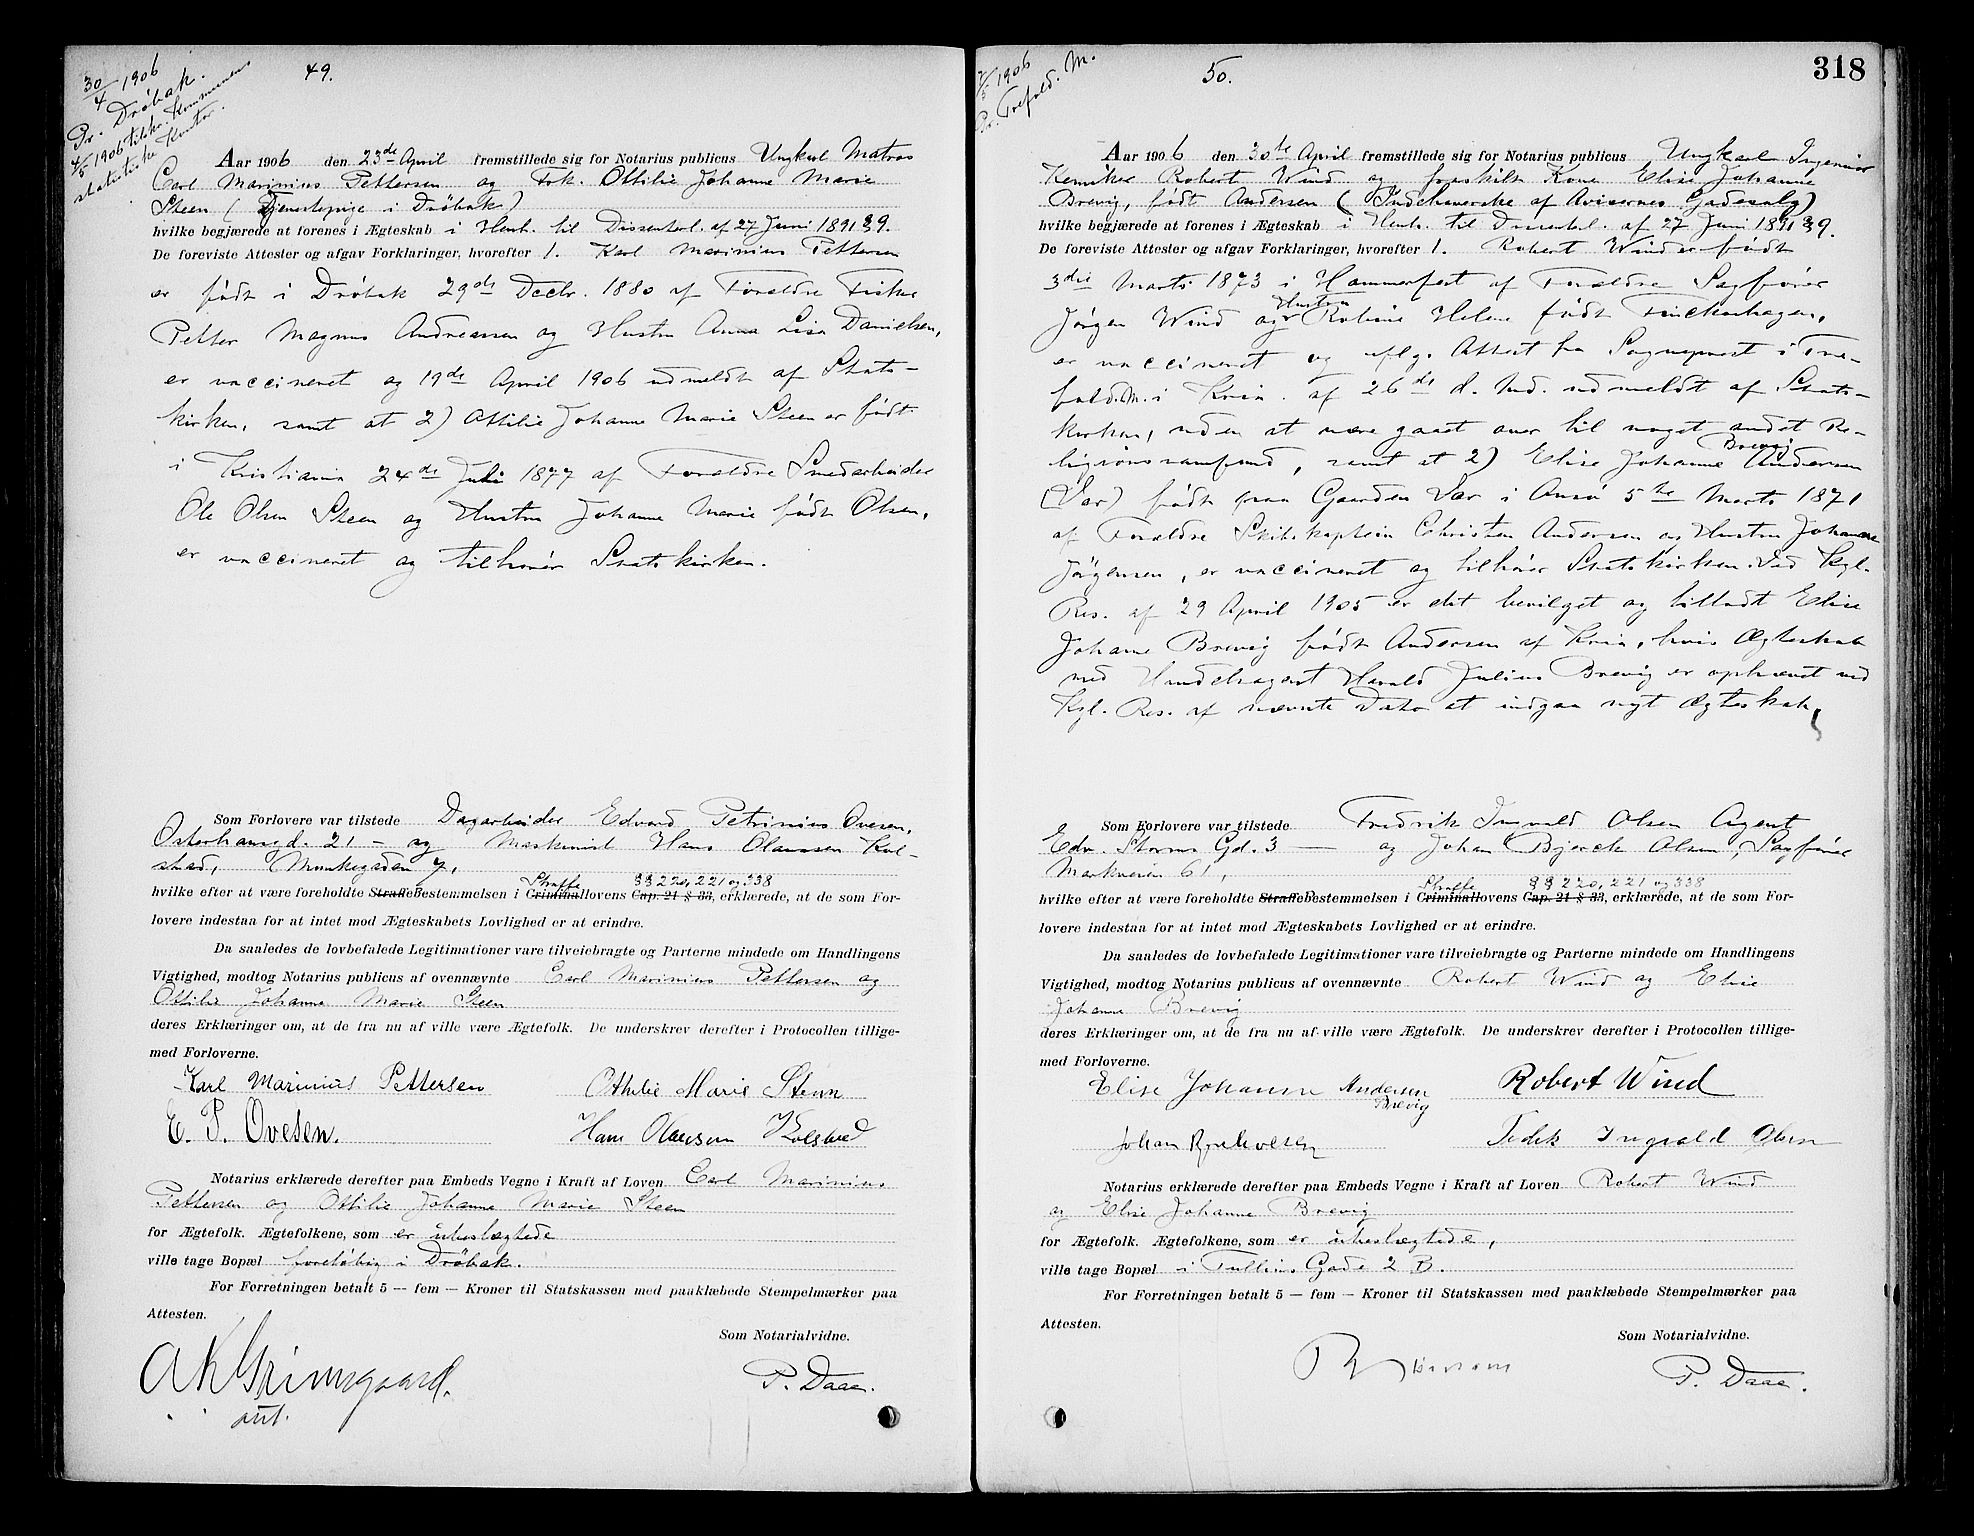 30/4 1906
Pr. Dröbak.
4/5 1906 tilskr. Kommunens
statistiske Kontor.
49.
Aar 1906 den 23de April fremstillede sig for Notarius publicus Ungkarl Matros
Carl Marinius Pettersen og Frk. Ottilie Johanne Marie
Steen (Tjenestepige i Dröbak)
hvilke begjærede at forenes i Ægteskab i Henh. til Dissenterl. af 27 Juni 1891 § 9.
De foreviste Attester og afgav Forklaringer, hvorefter 1. Karl Marinius Pettersen
er født i Dröbak 29de Decbr. 1880 af Forældre Fisker
Petter Magnus Andreassen og Hustru Anna Lisa Danielsen,
er vaccineret og 19de April 1906 udmeldt af Stats-
kirken, samt at 2) Ottilie Johanne Marie Steen er født
i Kristiania 24de Juli 1877 af Forældre Smedarbeider
Ole Olsen Steen og Hustru Johanne Marie født Olsen,
er vaccineret og tilhører Statskirken.
Som Forlovere var tilstede Dagarbeider Edvard Petrinius Ovesen,
Osterhausgd. 21 - og Maskinist Hans Olaussen Kol-
stad, Munkegaden 7,
Straffe §§ 220, 221 og 338
hvilke efter at være foreholdte Straffebestemmelsen i Criminallovens Cap. 21 § 33, erklærede, at de som For-
lovere indestaa for at intet mod Ægteskabets Lovlighed er at erindre.
Da saaledes de lovbefalede Legitimationer vare tilveiebragte og Parterne mindede om Handlingens
Vigtighed, modtog Notarius publicus af ovennævnte Carl Marinius Pettersen og
Ottilie Johanne Marie Steen
deres Erklæringer om, at de fra nu af ville være Ægtefolk. De underskrev derefter i Protocollen tillige-
med Forloverne.
Karl Marinius Pettersen Othilie Marie Steen
E. P. Ovesen. Hans Olaussen Kolstad
Notarius erklærede derefter paa Embeds Vegne i Kraft af Loven Carl Marinius
Pettersen og Ottilie Johanne Marie Steen
for Ægtefolk. Ægtefolkene, som er ubeslægtede
ville tage Bopæl foreløbig i Dröbak.
For Forretningen betalt 5 — fem — Kroner til Statskassen med paaklæbede Stempelmærker paa
Attesten.
Som Notarialvidne.
A K Grimsgaard. P. Daae.
aut.
318
7/5 1906
Pr. Trefold. M.
50.
Aar 1906 den 30te April fremstillede sig for Notarius publicus Ungkarl Ingeniør
Kemiker Robert Wind og fraskilt Kone Elise Johanne
Brevig, født Andersen (Indehaverske af Avisernes Gadesalg)
hvilke begjærede at forenes i Ægteskab i Henh. til Dissenterl. af 27 Juni 1891 § 9.
De foreviste Attester og afgav Forklaringer, hvorefter 1. Robert Wind er født
3die Marts 1873 i Hammerfest af Forældre Sagfører
Jørgen Wind og Hustru Robine Helene født Finckenhagen,
er vaccineret og iflg. Attest fra Sognepræst i Tre-
fold. M. i Kria. af 26de d. Md. udmeldt af Stats-
kirken, uden at være gaaet over til noget andet Re-
ligionssamfund, samt at 2) Elise Johanne Brevig Andersen
(Sær) født paa Gaarden Sær i Onsø 5te Marts 1871
af Forældre Skibskaptein Christen Andersen og Hustru Johanne
Jørgensen, er vaccineret og tilhører Statskirken. Ved Kgl.
Res. af 29 April 1905 er det bevilget og tilladt Elise
Johanne Brevig født Andersen af Kria., hvis Ægteskab
med Handelsagent Harald Julius Brevig er ophævet ved
Kgl. Res. af nævnte Dato at indgaa nyt Ægteskab.
Som Forlovere var tilstede Fredrik Ingvald Olsen Agent
Edv. Storms Gd. 3 — og Johan Bjerck Olsen, Sagfører
Markveien 61,
Straffe §§ 220, 221 og 338
hvilke efter at være foreholdte Straffebestemmelsen i Criminallovens Cap. 21 § 33, erklærede, at de som For-
lovere indestaa for at intet mod Ægteskabets Lovlighed er at erindre.
Da saaledes de lovbefalede Legitimationer vare tilveiebragte og Parterne mindede om Handlingens
Vigtighed, modtog Notarius publicus af ovennævnte Robert Wind og Elise
Johanne Brevig
deres Erklæringer om, at de fra nu af ville være Ægtefolk. De underskrev derefter i Protocollen tillige-
med Forloverne.
Elise Johanne Andersen Brevig Robert Wind
Johan Bjerck Olsen Fredrk Ingvald Olsen
Notarius erklærede derefter paa Embeds Vegne i Kraft af Loven Robert Wind
og Elise Johanne Brevig
for Ægtefolk. Ægtefolkene, som er ubeslægtede,
ville tage Bopæl i Tullins Gade 2 B.
For Forretningen betalt 5 — fem — Kroner til Statskassen med paaklæbede Stempelmærker paa
Attesten.
Som Notarialvidne.
P. Daae.